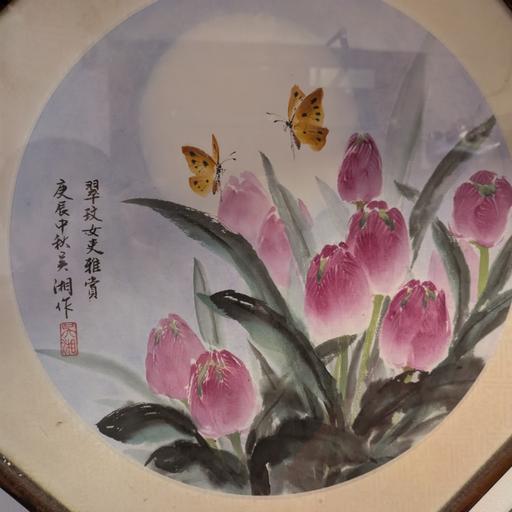 翠玟女史雅賞
庚辰中秋吴湘作
吴湘